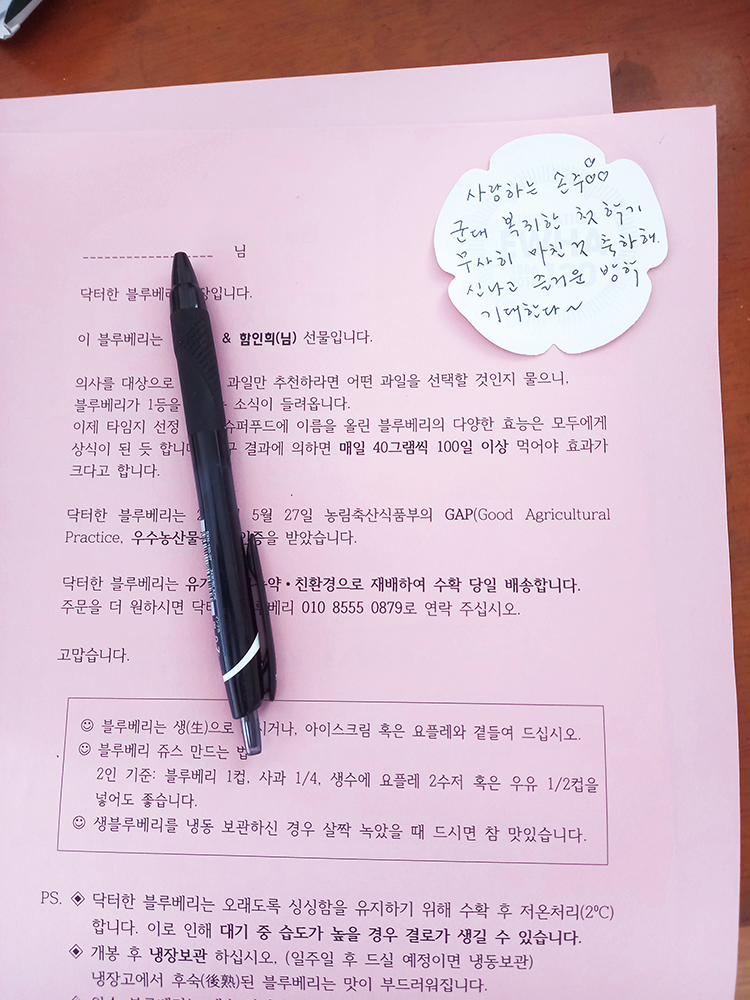 사랑하는 손주
군대 복귀한 첫 학기
무사히 마친 것 축하해.
신나고 즐거운 방학
기대한다~
님
닥터한 블루베리 장입니다.
이 블루베리는 & 함인희(님) 선물입니다.
의사를 대상으로 과일만 추천하라면 어떤 과일을 선택할 것인지 물으니,
블루베리가 1등을 소식이 들려옵니다.
이제 타임지 선정 수퍼푸드에 이름을 올린 블루베리의 다양한 효능은 모두에게
상식이 된 듯 합니다 구 결과에 의하면 매일 40그램씩 100일 이상 먹어야 효과가
크다고 합니다.
닥터한 블루베리는 2 5월 27일 농림축산식품부의 GAP(Good Agricultural
Practice, 우수농산물 인증을 받았습니다.
닥터한 블루베리는 유기 약・친환경으로 재배하여 수확 당일 배송합니다.
주문을 더 원하시면 닥터 베리 010 8555 0879로 연락 주십시오.
고맙습니다.
☺ 블루베리는 생(生)으로 시거나, 아이스크림 혹은 요플레와 곁들여 드십시오.
☺ 블루베리 쥬스 만드는 법
2인 기준: 블루베리 1컵, 사과 1/4, 생수에 요플레 2수저 혹은 우유 1/2컵을
넣어도 좋습니다.
☺ 생블루베리를 냉동 보관하신 경우 살짝 녹았을 때 드시면 참 맛있습니다.
PS. ◈ 닥터한 블루베리는 오래도록 싱싱함을 유지하기 위해 수확 후 저온처리(2⁰C)
합니다. 이로 인해 대기 중 습도가 높을 경우 결로가 생길 수 있습니다.
◈ 개봉 후 냉장보관 하십시오. (일주일 후 드실 예정이면 냉동보관)
냉장고에서 후숙(後熟)된 블루베리는 맛이 부드러워집니다.